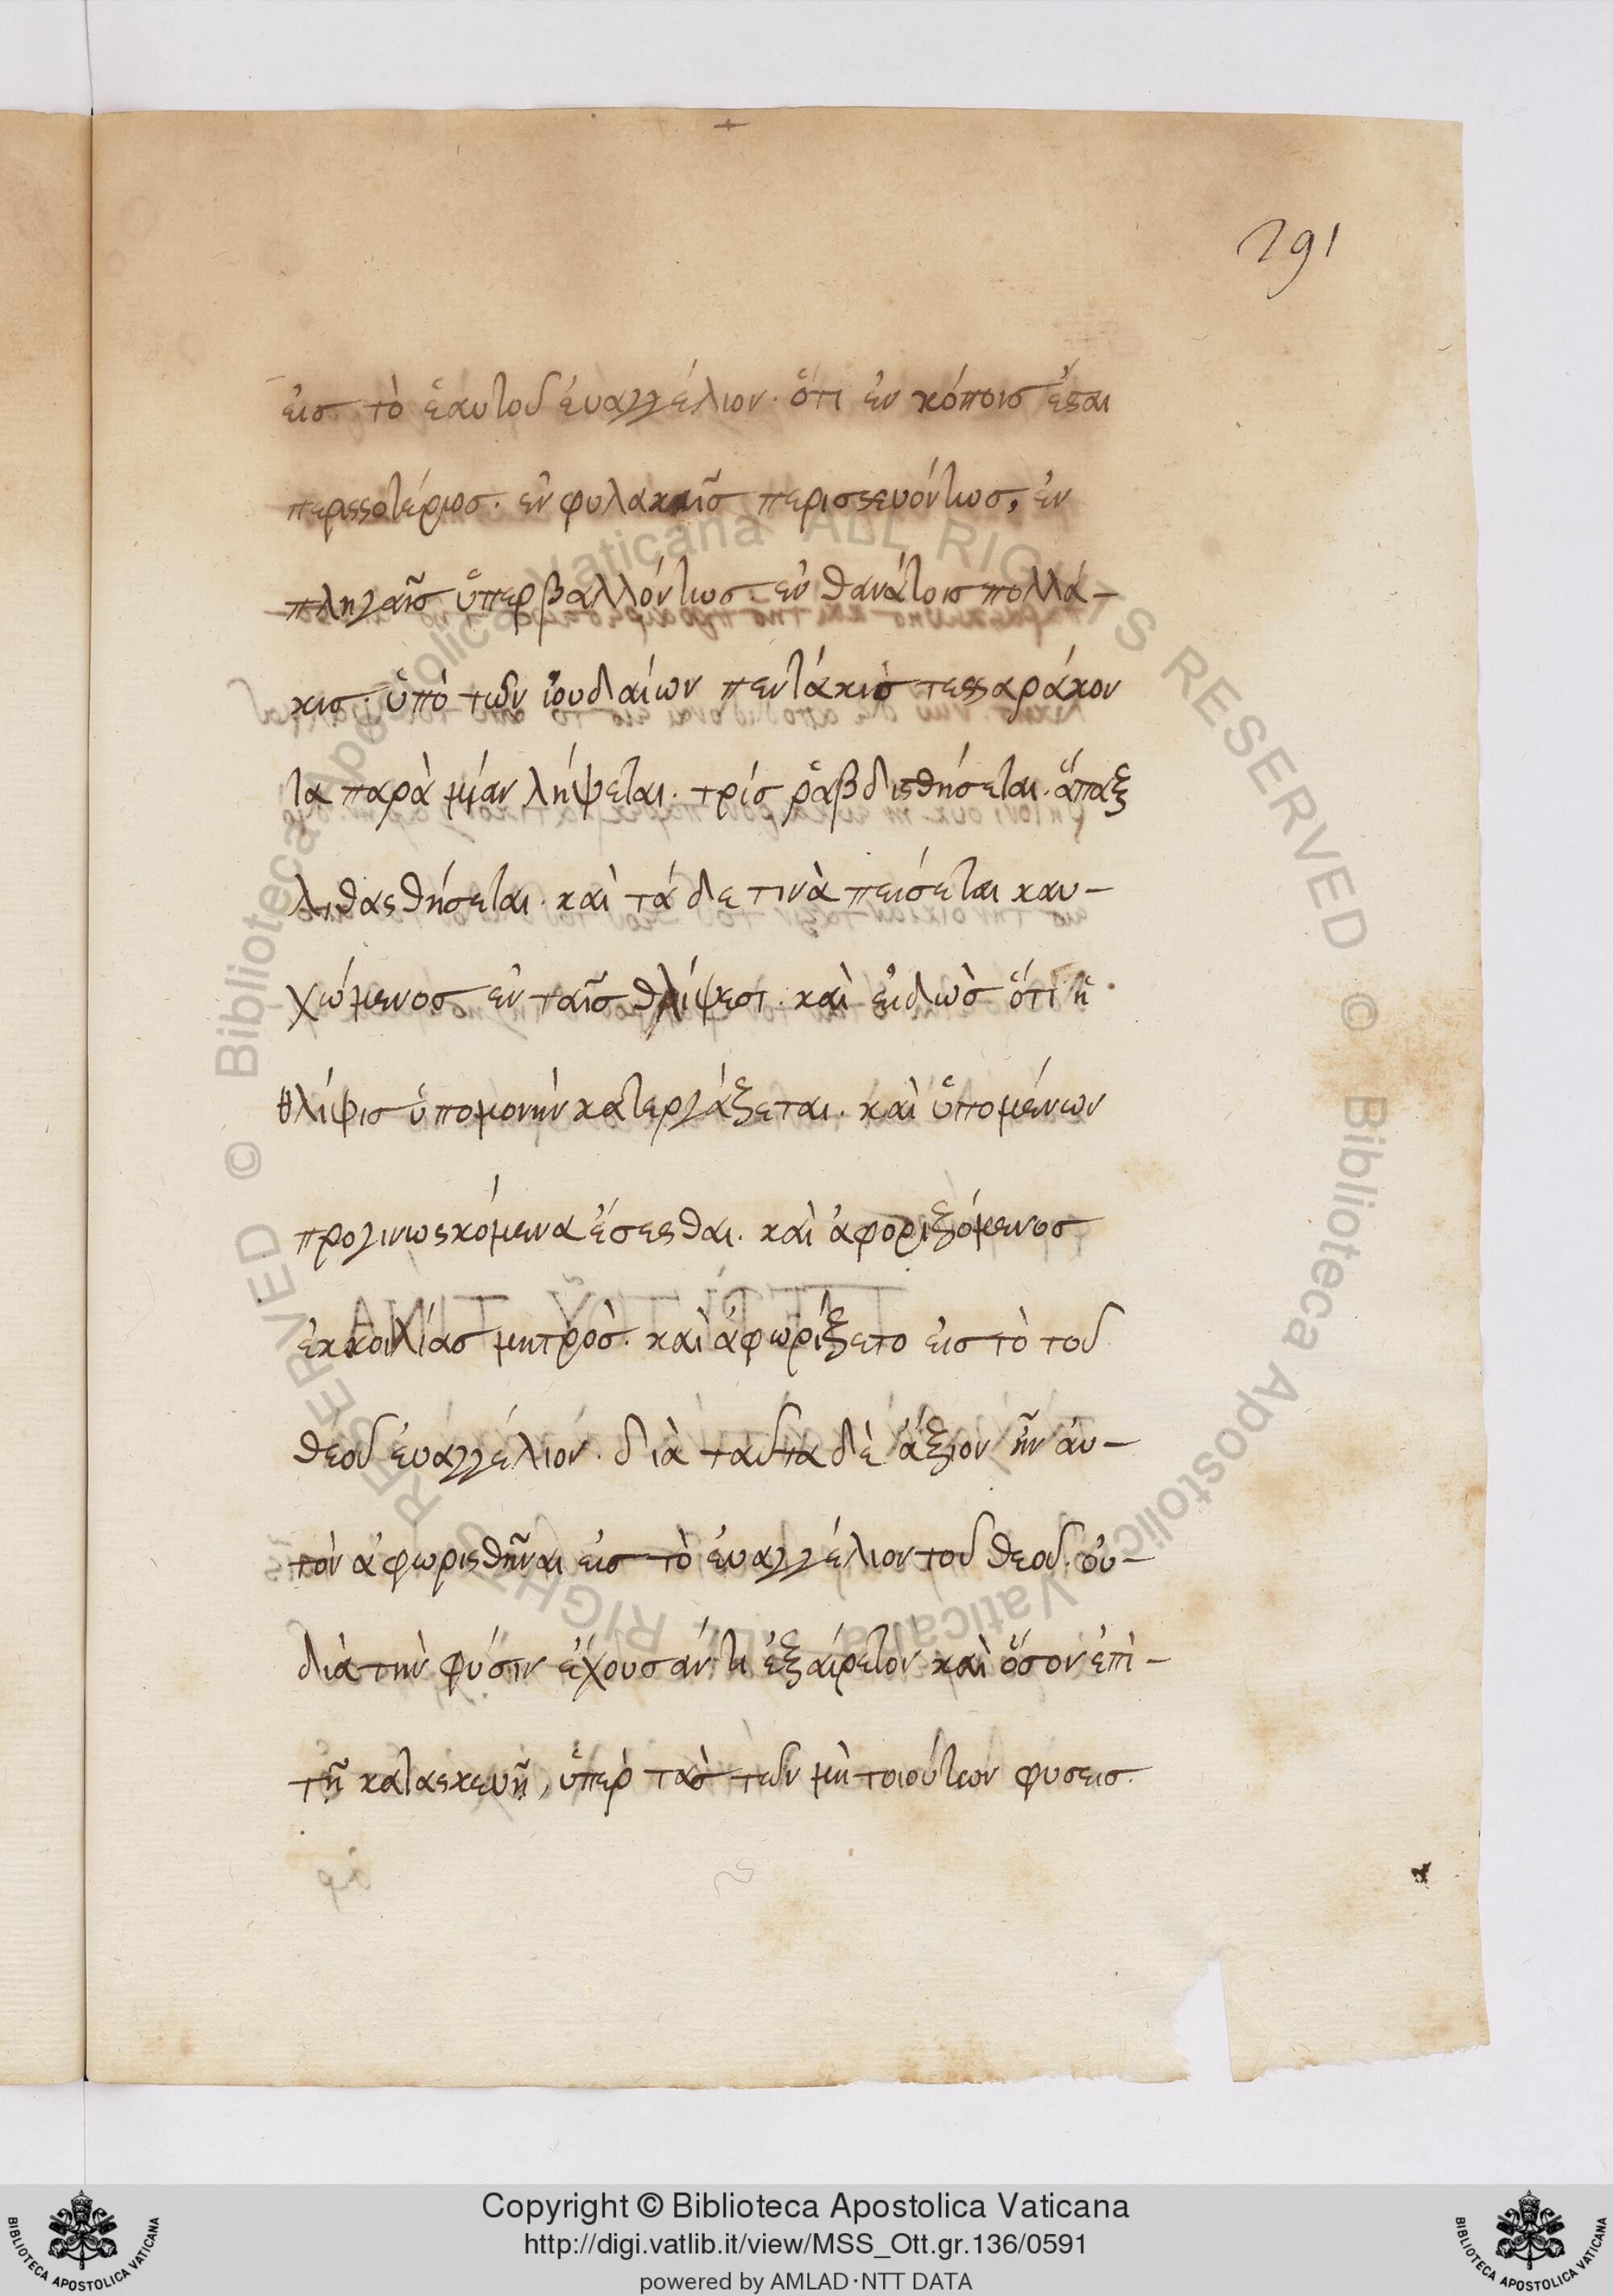 291
εἰσ τὸ ἑαυτοῦ ἐυαγγέλιον· ὅτι ἐν κόποισ ἔσται
περισσοτέρωσ· ἐν φυλακαῖσ περισσευόντωσ, ἐν
πληγαῖσ ὑπερβαλλόντωσ· ἐν θανάτοισ πολλά-
κισ· ὑπὸ τῶν ἰουδαίων πεντάκισ τεσσαράκον
τα παρὰ μίαν λήψεται· τρίσ ῥαβδισθήσεται· ἅπαξ
λιθασθήσεται· καὶ τά δε τινὰ πείσεται καυ-
χώμενοσ ἐν ταῖσ θλίψεσι· καὶ εἰδὼσ ὅτι ἡ
θλίψισ ὑπομονὴν κατεργάζεται· καὶ ὑπομένων
προγινωσκόμενα ἔσεσθαι· καὶ ἀφοριζόμενοσ
ἐκ κοιλίασ μητρὸσ· καὶ ἀφωρίζετο εἰσ τὸ τοῦ
θεοῦ ἐυαγγέλιον· διὰ ταῦτα δὲ ἄξιον ἦν ἀυ-
τὸν ἀφωρισθῆναι εἰσ τὸ ἐυαγγέλιον τοῦ θεοῦ· ὀυ-
διὰ τὴν φύσιν ἔχουσάν τι ἐξαίρετον καὶ ὅσον ἐπὶ-
τῇ κατασκευῇ, ὑπὲρ τὰσ τῶν μὴ τοιούτων φύσεισ·
Copyright © Biblioteca Apostolica Vaticana
http://digi.vatlib.it/view/MSS_Ott.gr.136/0591
powered by AMLAD·NTT DATA
BIBLIOTECA APOSTOLICA VATICANA
BIBLIOTECA APOSTOLICA VATICANA
© Biblioteca Apostolica Vaticana ALL RIGHTS RESERVED © Biblioteca Apostolica Vaticana ALL RIGHTS RESERVED